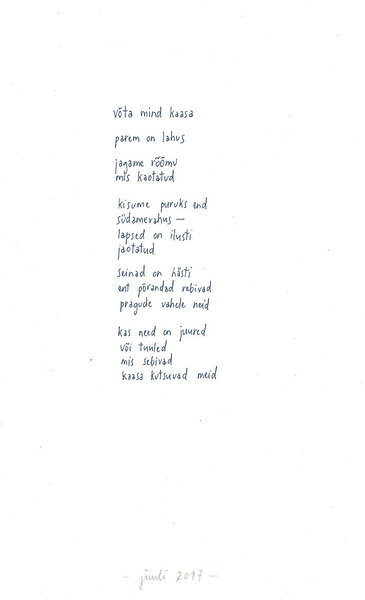 võta mind kaasa
parem on lahus
jagame rõõmu
mis kaotatud
kisume puruks end
südamerahus —
lapsed on ilusti
jaotatud
seinad on hästi
ent põrandad rebivad
pragude vahele neid
kas need on juured
või tuuled
mis sebivad
kaasa kutsuvad meid
- juuli 2017 -